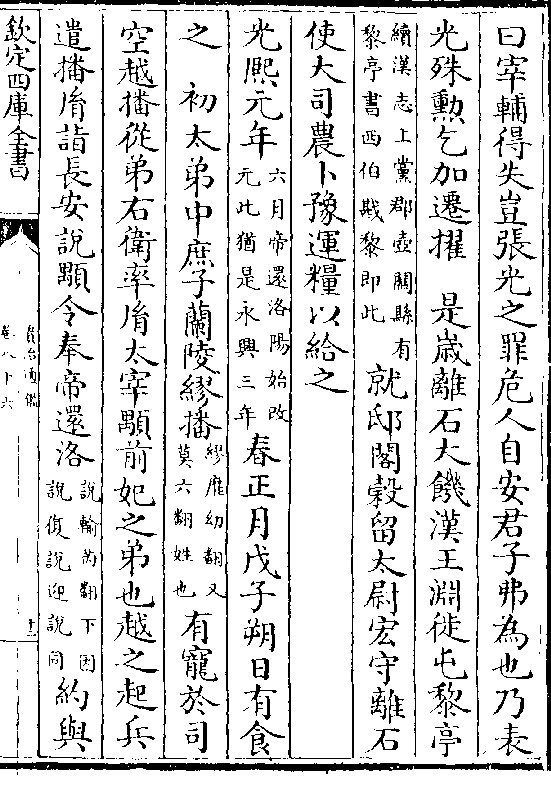 曰宰輔得失豈張光之罪危人自安君子弗為也乃表
光殊勲乞加遷擢　是嵗離石大饑漢王淵徙屯黎亭
續漢志上黨郡壺關縣有
黎亭書西伯戡黎即此
就邸閣穀留太尉宏守離石
使大司農卜豫運糧以給之
光熙元年
六月帝還洛陽始改
元此猶是永興三年
春正月戊子朔日有食
之　初太弟中庶子蘭陵繆播
繆靡幼翻又
莫六翻姓也
有寵於司
空越播從弟右衛率𦙍太宰顒前妃之弟也越之起兵
遣播𦙍詣長安說顒令奉帝還洛
說輸芮翻下因
說復說迎說同
約與
欽定四庫全書
資治通鑑
卷八十六
十一